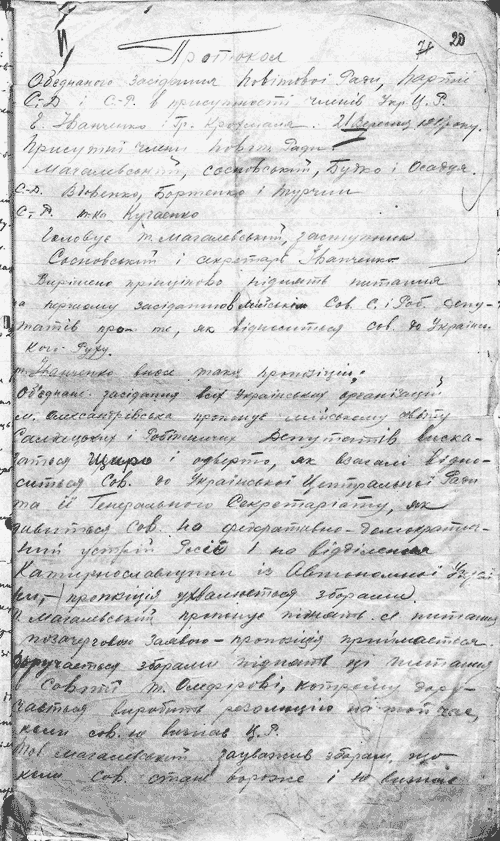 20
Протокол
Обєднаного засідання Повітової Ради, Партії
С-Д і С-Р. в присутности членів Укр. Ц. Р.
Е. Іванченко і Гр. 21 Вересня 1917 року.
Присутні члени Повіт. Ради
Магалевський, Сосновський, Будко і Осадця.
С-Д. Вдовенко, Борженко і Турчин
С-Р. Кучаенко
Чоловує т. Магалевський, заступник
Сосновський і секретарь Іванченко
Вирішено прінціпово підняти питання
на першому засіданню міськім Сов. С. і Роб. Депу-
татів про те, як відноситься сов. до Україн-
Руху.
т. Іванченко вносе таку пропозіцію:
Обєднане засідання всіх Українських організацій
м. Олександрівська пропонує мійському
Салдацьких і Робітничих Депутатів виска-
заться щиро і одверто, як взагалі відно-
ситься Сов. до Української Центральної Ради
та її Генерального Секретаріату, як
дивиться Сов. на федративно-демократич-
ний устрій Росії і на відділення
Катиринославщини із Автономної Украї
ни, – пропозіція ухвалюється зборами.
т. Магалевський пропонує піднять питання
позачерговою заявою – пропозіція приймається.
Доручається зборами піднять ці питання
в Совіті т. Олефірові, котрому дору-
чається виробить резолюцію на той час,
коли сов. не визнав Ц. Р.
Тов. Магалевський зауважив зборам, що
коли Сов. стане вороже і не визнає